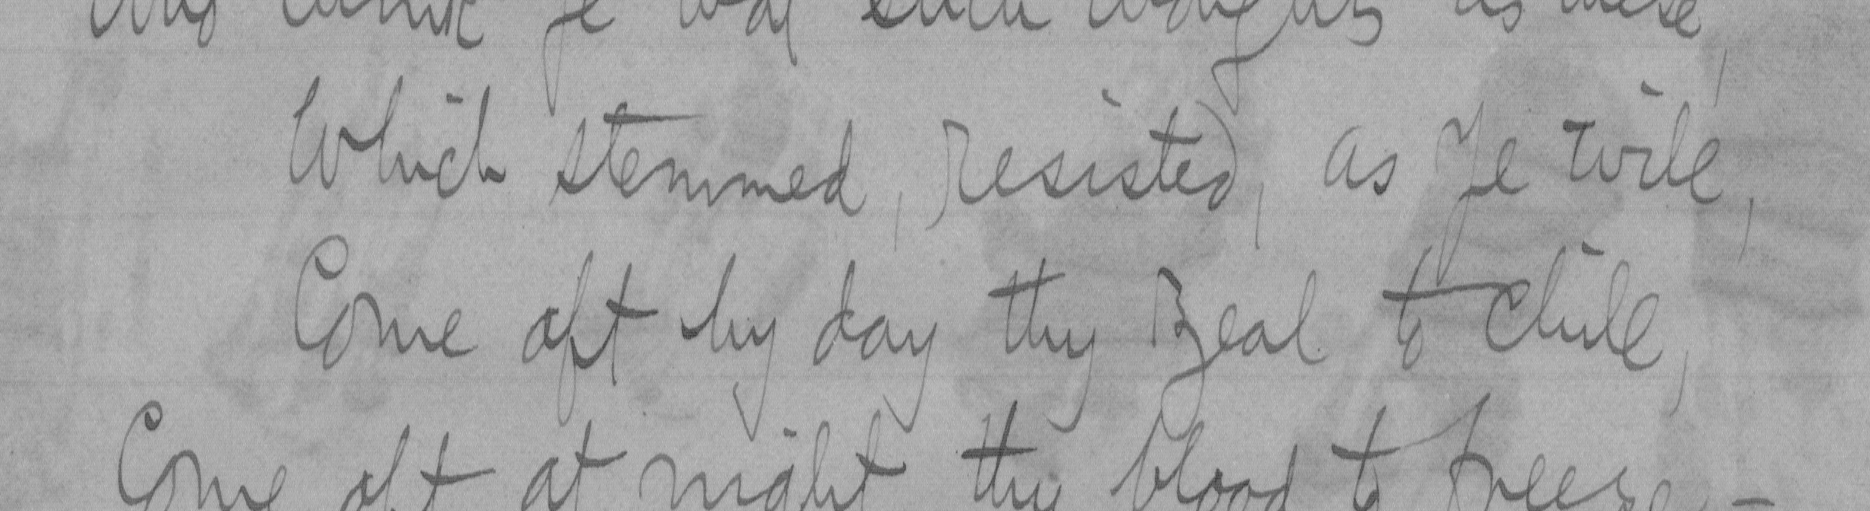 And think ye not such thoughts as these,
Which stemmed, resisted, as ye will,
Come oft by day thy zeal to chill,
Come oft at night thy blood to freeze -